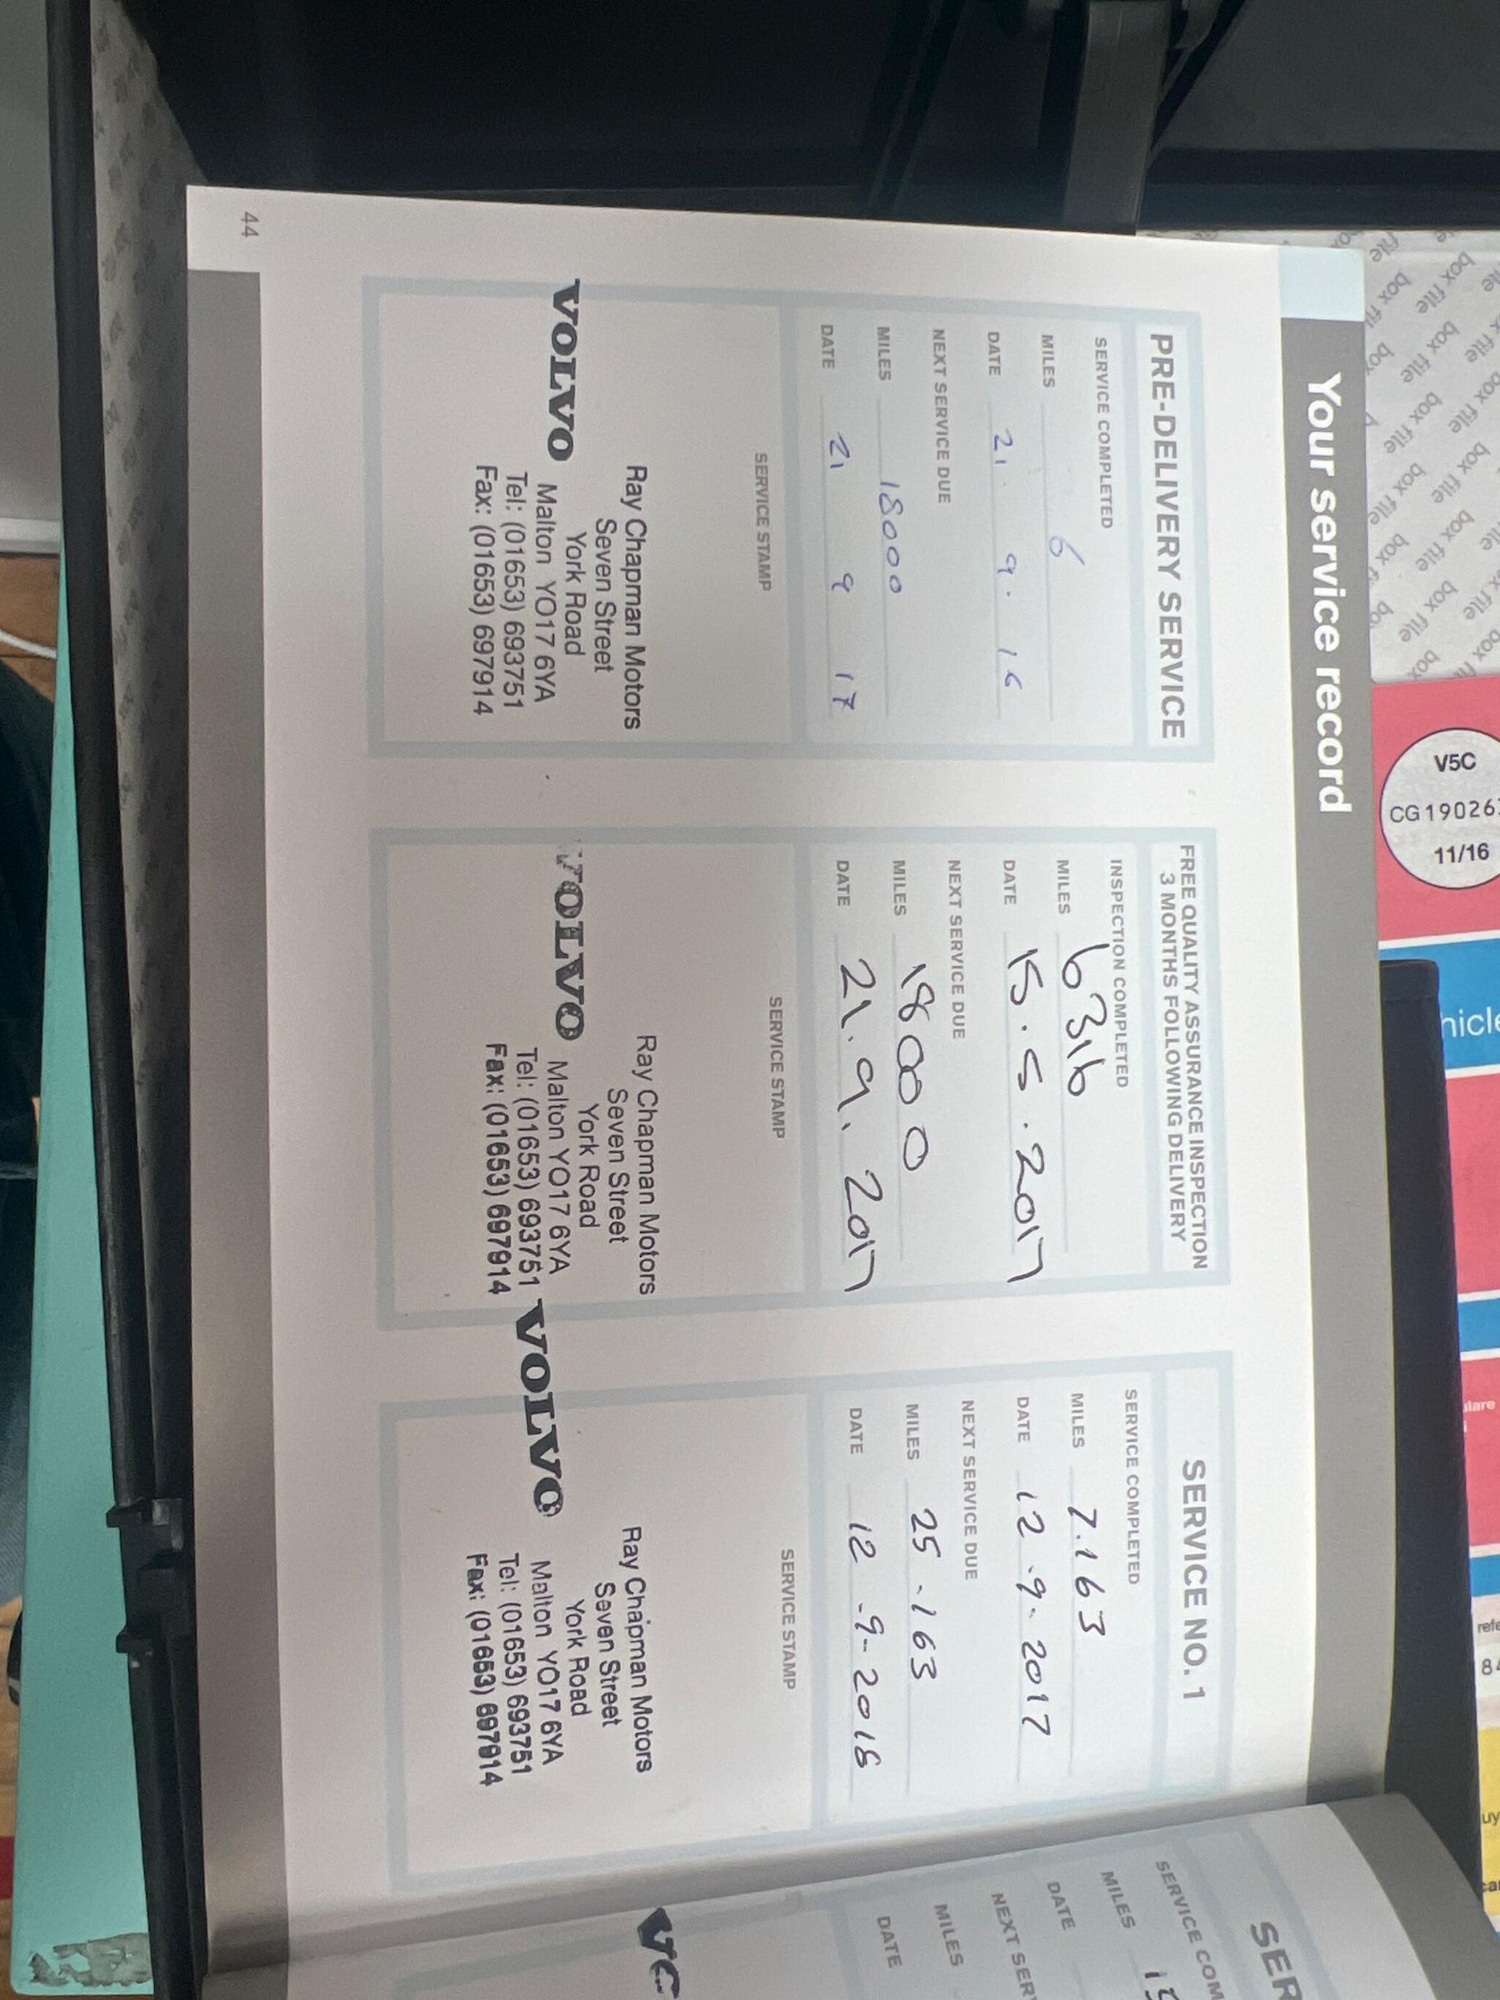 Your service record
PRE-DELIVERY SERVICE
SERVICE COMPLETED
MILES 6
DATE 21. 9. 16
NEXT SERVICE DUE
MILES 18000
DATE 21 9 17
SERVICE STAMP
Ray Chapman Motors
Seven Street
York Road
VOLVO Malton YO17 6YA
Tel: (01653) 693751
Fax: (01653) 697914
FREE QUALITY ASSURANCE INSPECTION
3 MONTHS FOLLOWING DELIVERY
INSPECTION COMPLETED
MILES 6316
DATE 15.5.2017
NEXT SERVICE DUE
MILES 18000
DATE 21.9.2017
SERVICE STAMP
Ray Chapman Motors
Seven Street
York Road
VOLVO Malton YO17 6YA
Tel: (01653) 693751
Fax: (01653) 697914
SERVICE NO. 1
SERVICE COMPLETED
MILES 7.163
DATE 12.9.2017
NEXT SERVICE DUE
MILES 25.163
DATE 12-9-2018
SERVICE STAMP
Ray Chapman Motors
Seven Street
York Road
VOLVO Malton YO17 6YA
Tel: (01653) 693751
Fax: (01653) 697914
44
SER
SERVICE COM
MILES
DATE
NEXT SER
MILES
DATE
V5C
CG19026
11/16
box file